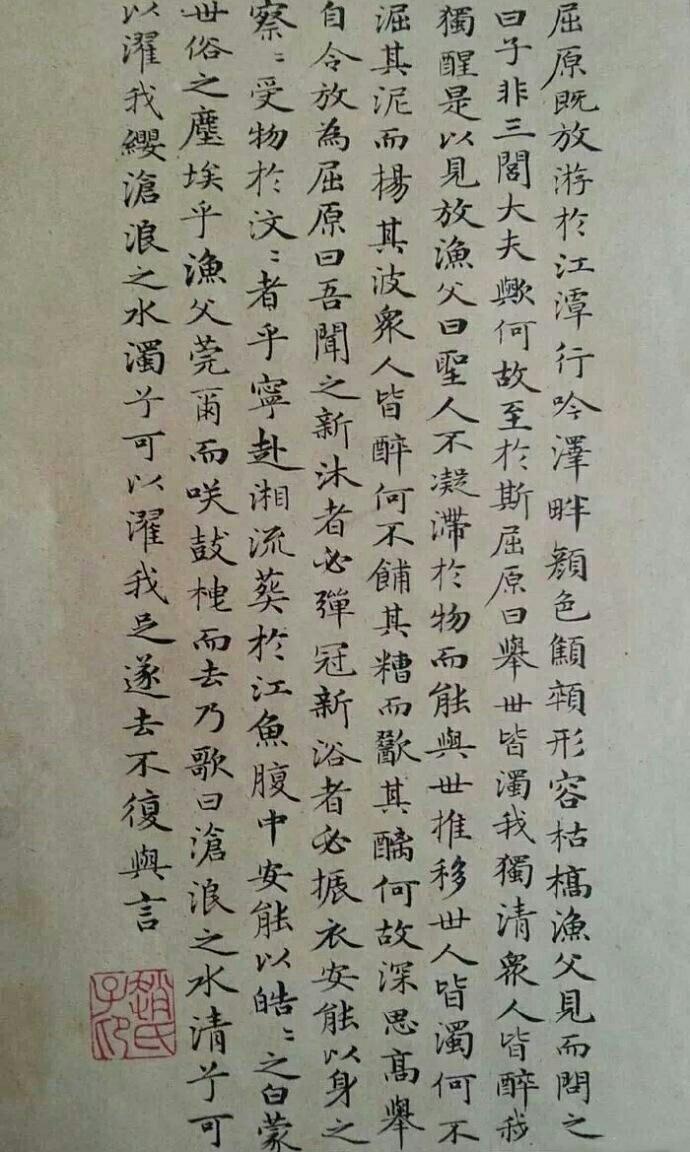 屈原既放游於江潭行吟澤畔顔色顦顇形容枯槁漁父見而問之
曰子非三閭大夫歟何故至於斯屈原曰舉世皆濁我獨清衆人皆醉我
獨醒是以見放漁父曰聖人不凝滯於物而能與世推移世人皆濁何不
淈其泥而楊其波衆人皆醉何不餔其糟而歠其醨何故深思高舉
自令放為屈原曰吾聞之新沐者必彈冠新浴者必振衣安能以身之
察〻受物於汶〻者乎寧赴湘流葬於江魚腹中安能以皓〻之白蒙
世俗之塵埃乎漁父莞爾而咲鼓枻而去乃歌曰滄浪之水清兮可
以濯我纓滄浪之水濁兮可以濯我足遂去不復與言
趙氏子印